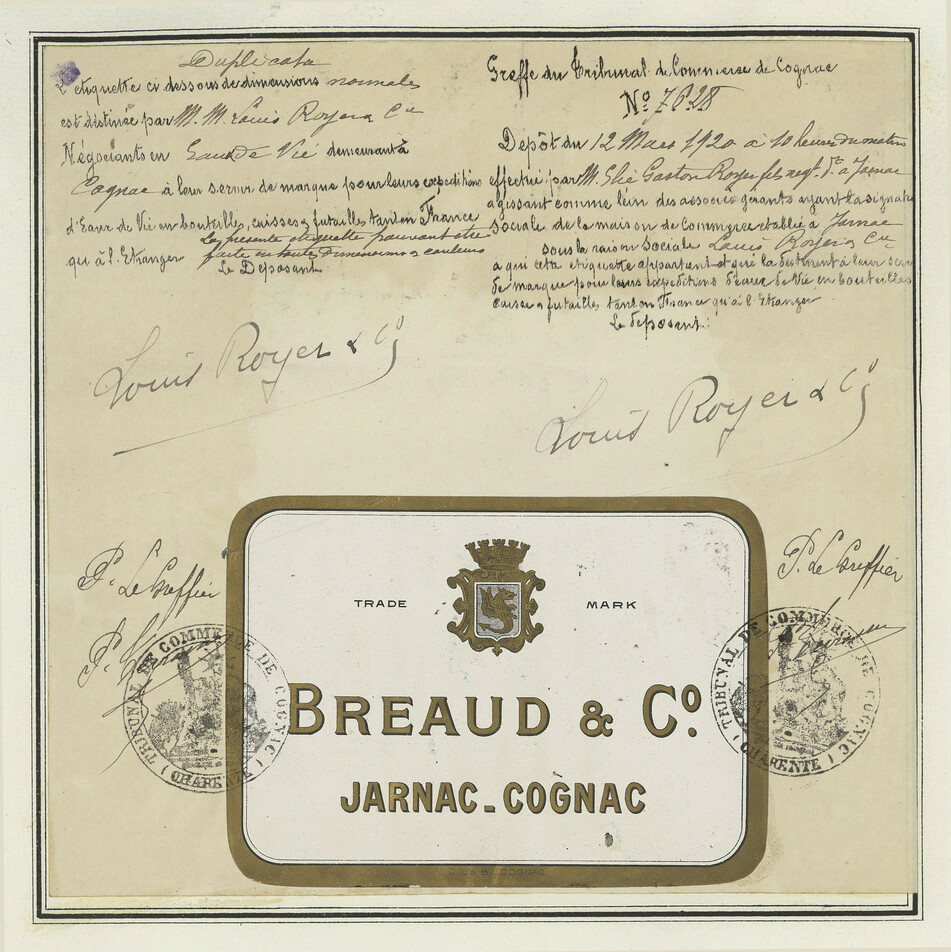 Duplicata
L'étiquette ci dessous de dimensions normales
est destinée par M. M. Louis Royer & Cie
Négociants en Eaux de Vie demeurant à
Cognac à leur servir de marque pour leurs expéditions
d'Eaux de Vie en bouteilles, caisses & futailles tant en France
qu'à l'Etranger La présente étiquette pouvant être
faite en toutes dimensions & couleurs
Le Déposant
Louis Royer & Co
Greffe du Tribunal de Commerce de Cognac
No 7628
Dépôt du 12 Mars 1920 à 10 heures du matin
effectué par M. Elie Gaston Royer fils negt. à Jarnac
agissant comme l'un des associés gérants ayant la signature
sociale de la maison de Commerce établie à Jarnac
sous la raison sociale Louis Royer & Cie
à qui cette étiquette appartient et qui la destinent à leur servir
de marque pour leurs expéditions d'eaux de Vie en bouteilles
caisses & futailles tant en France qu'à l'Etranger
Le déposant:
Louis Royer & Co
P. Le Greffier
P. Le Greffier
TRIBUNAL DE COMMERCE DE COGNAC
(CHARENTE)
TRIBUNAL DE COMMERCE DE COGNAC
(CHARENTE)
TRADE MARK
BREAUD & Co.
JARNAC-COGNAC